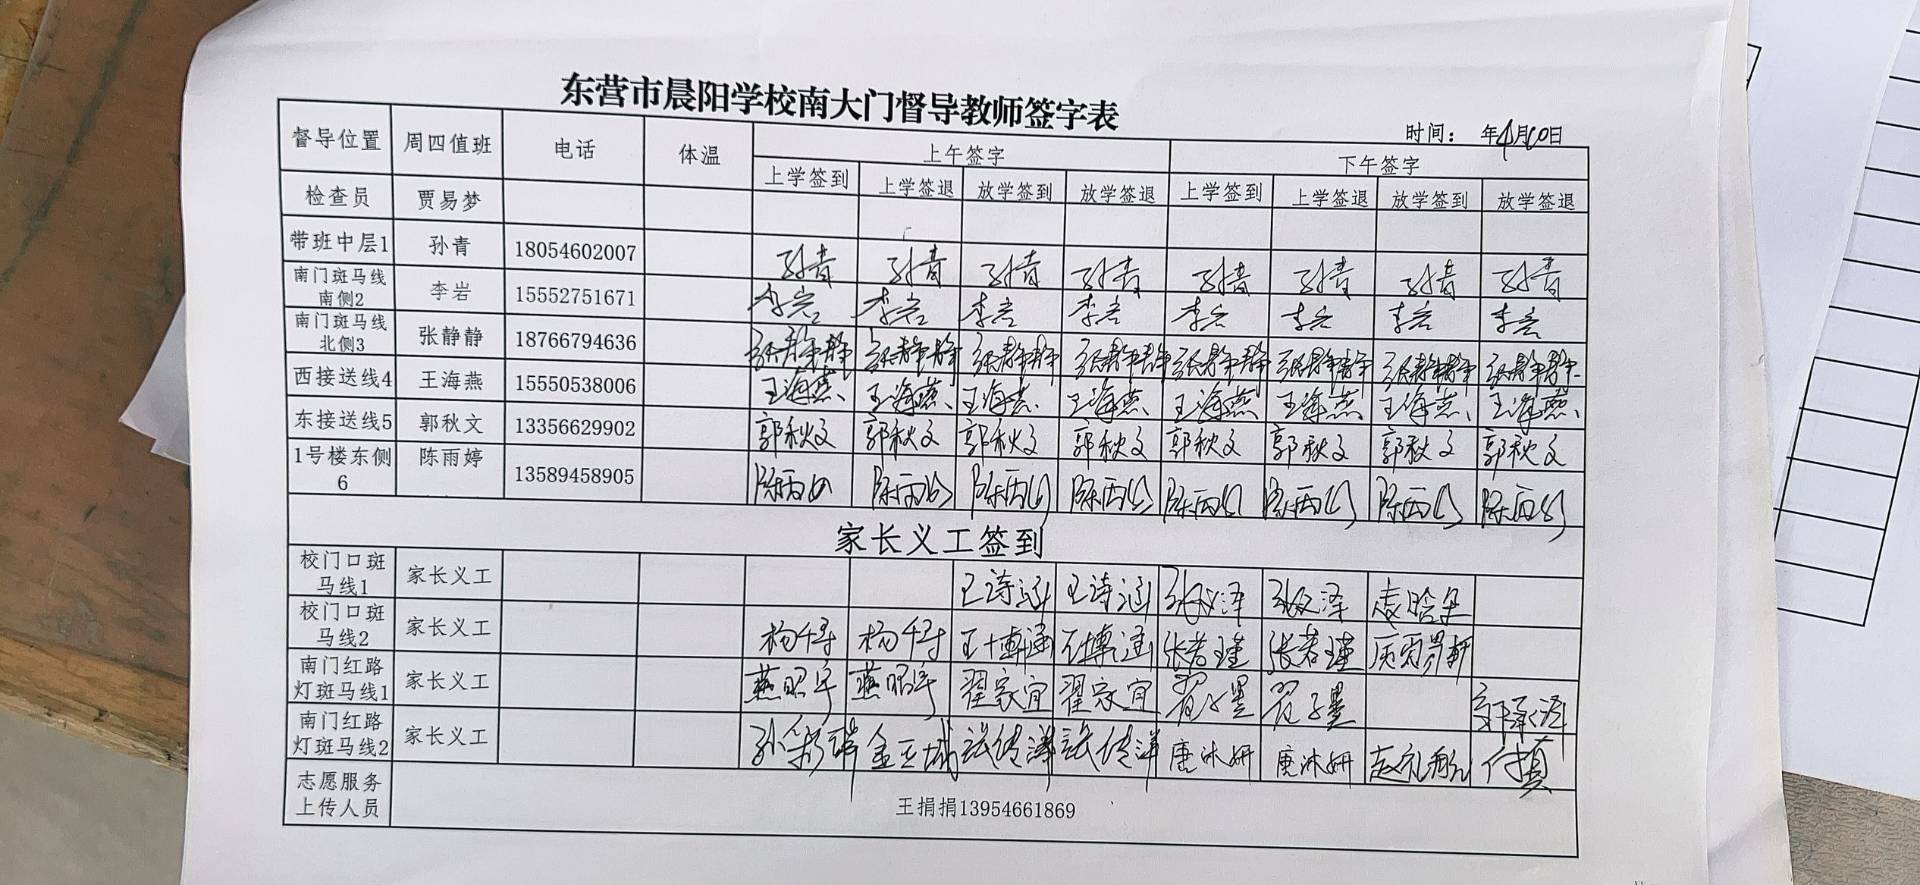 东营市晨阳学校南大门督导教师签字表
时间： 年4月10日
督导位置 周四值班 电话 体温 上午签字 下午签字
上学签到 上学签退 放学签到 放学签退 上学签到 上学签退 放学签到 放学签退
检查员 贾易梦
带班中层1 孙青 18054602007 孙青 孙青 孙青 孙青 孙青 孙青 孙青 孙青
南门斑马线
南侧2 李岩 15552751671 李岩 李岩 李岩 李岩 李岩 李岩 李岩 李岩
南门斑马线
北侧3 张静静 18766794636 张静静 张静静 张静静 张静静 张静静 张静静 张静静 张静静
西接送线4 王海燕 15550538006 王海燕 王海燕 王海燕 王海燕 王海燕 王海燕 王海燕 王海燕
东接送线5 郭秋文 13356629902 郭秋文 郭秋文 郭秋文 郭秋文 郭秋文 郭秋文 郭秋文 郭秋文
1号楼东侧
6 陈雨婷 13589458905 陈雨 陈雨 陈雨 陈雨 陈雨 陈雨 陈雨 陈雨
家长义工签到
校门口斑
马线1 家长义工 王诗涵 王诗涵
校门口斑
马线2 家长义工 王博涵 张若瑾 张若瑾
南门红路
灯斑马线1 家长义工 燕昭宇 燕昭宇 翟家宜 翟家宜 翟子墨 翟子墨
南门红路
灯斑马线2 家长义工 张传洋 张传洋 唐沐妍 唐沐妍 付真
志愿服务
上传人员 王捐捐13954661869